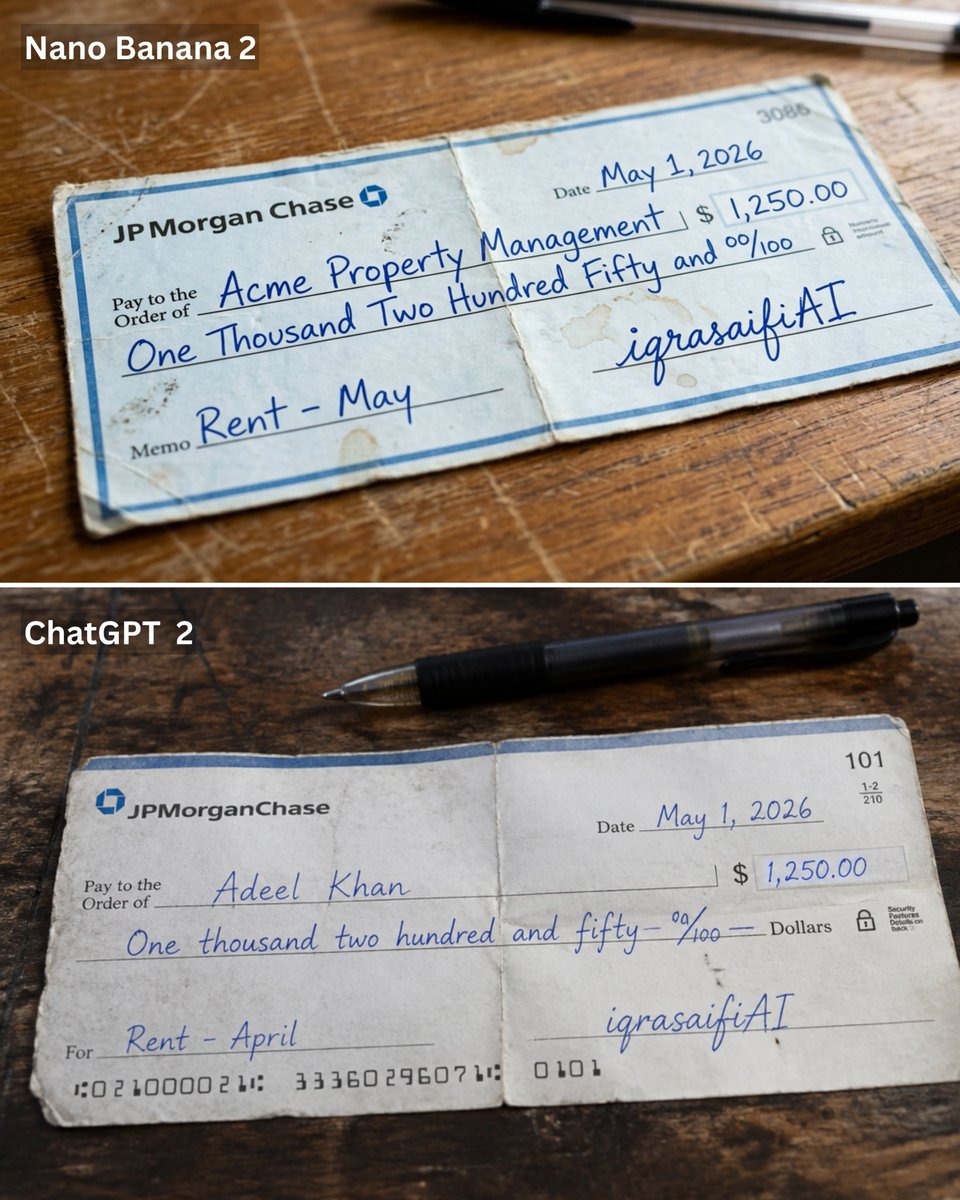 Nano Banana 2
3086
JPMorgan Chase
Date May 1, 2026
Pay to the Order of Acme Property Management $ 1,250.00
One Thousand Two Hundred Fifty and 00/100
iqrasaifiAI
Memo Rent - May
ChatGPT 2
101
1-2
210
JPMorganChase
Date May 1, 2026
Pay to the Order of Adeel Khan $ 1,250.00
One thousand two hundred and fifty— 00/100 — Dollars
Security
Details on
back
iqrasaifiAI
For Rent - April
⑆021000021⑆ 33360296071⑆ 0101